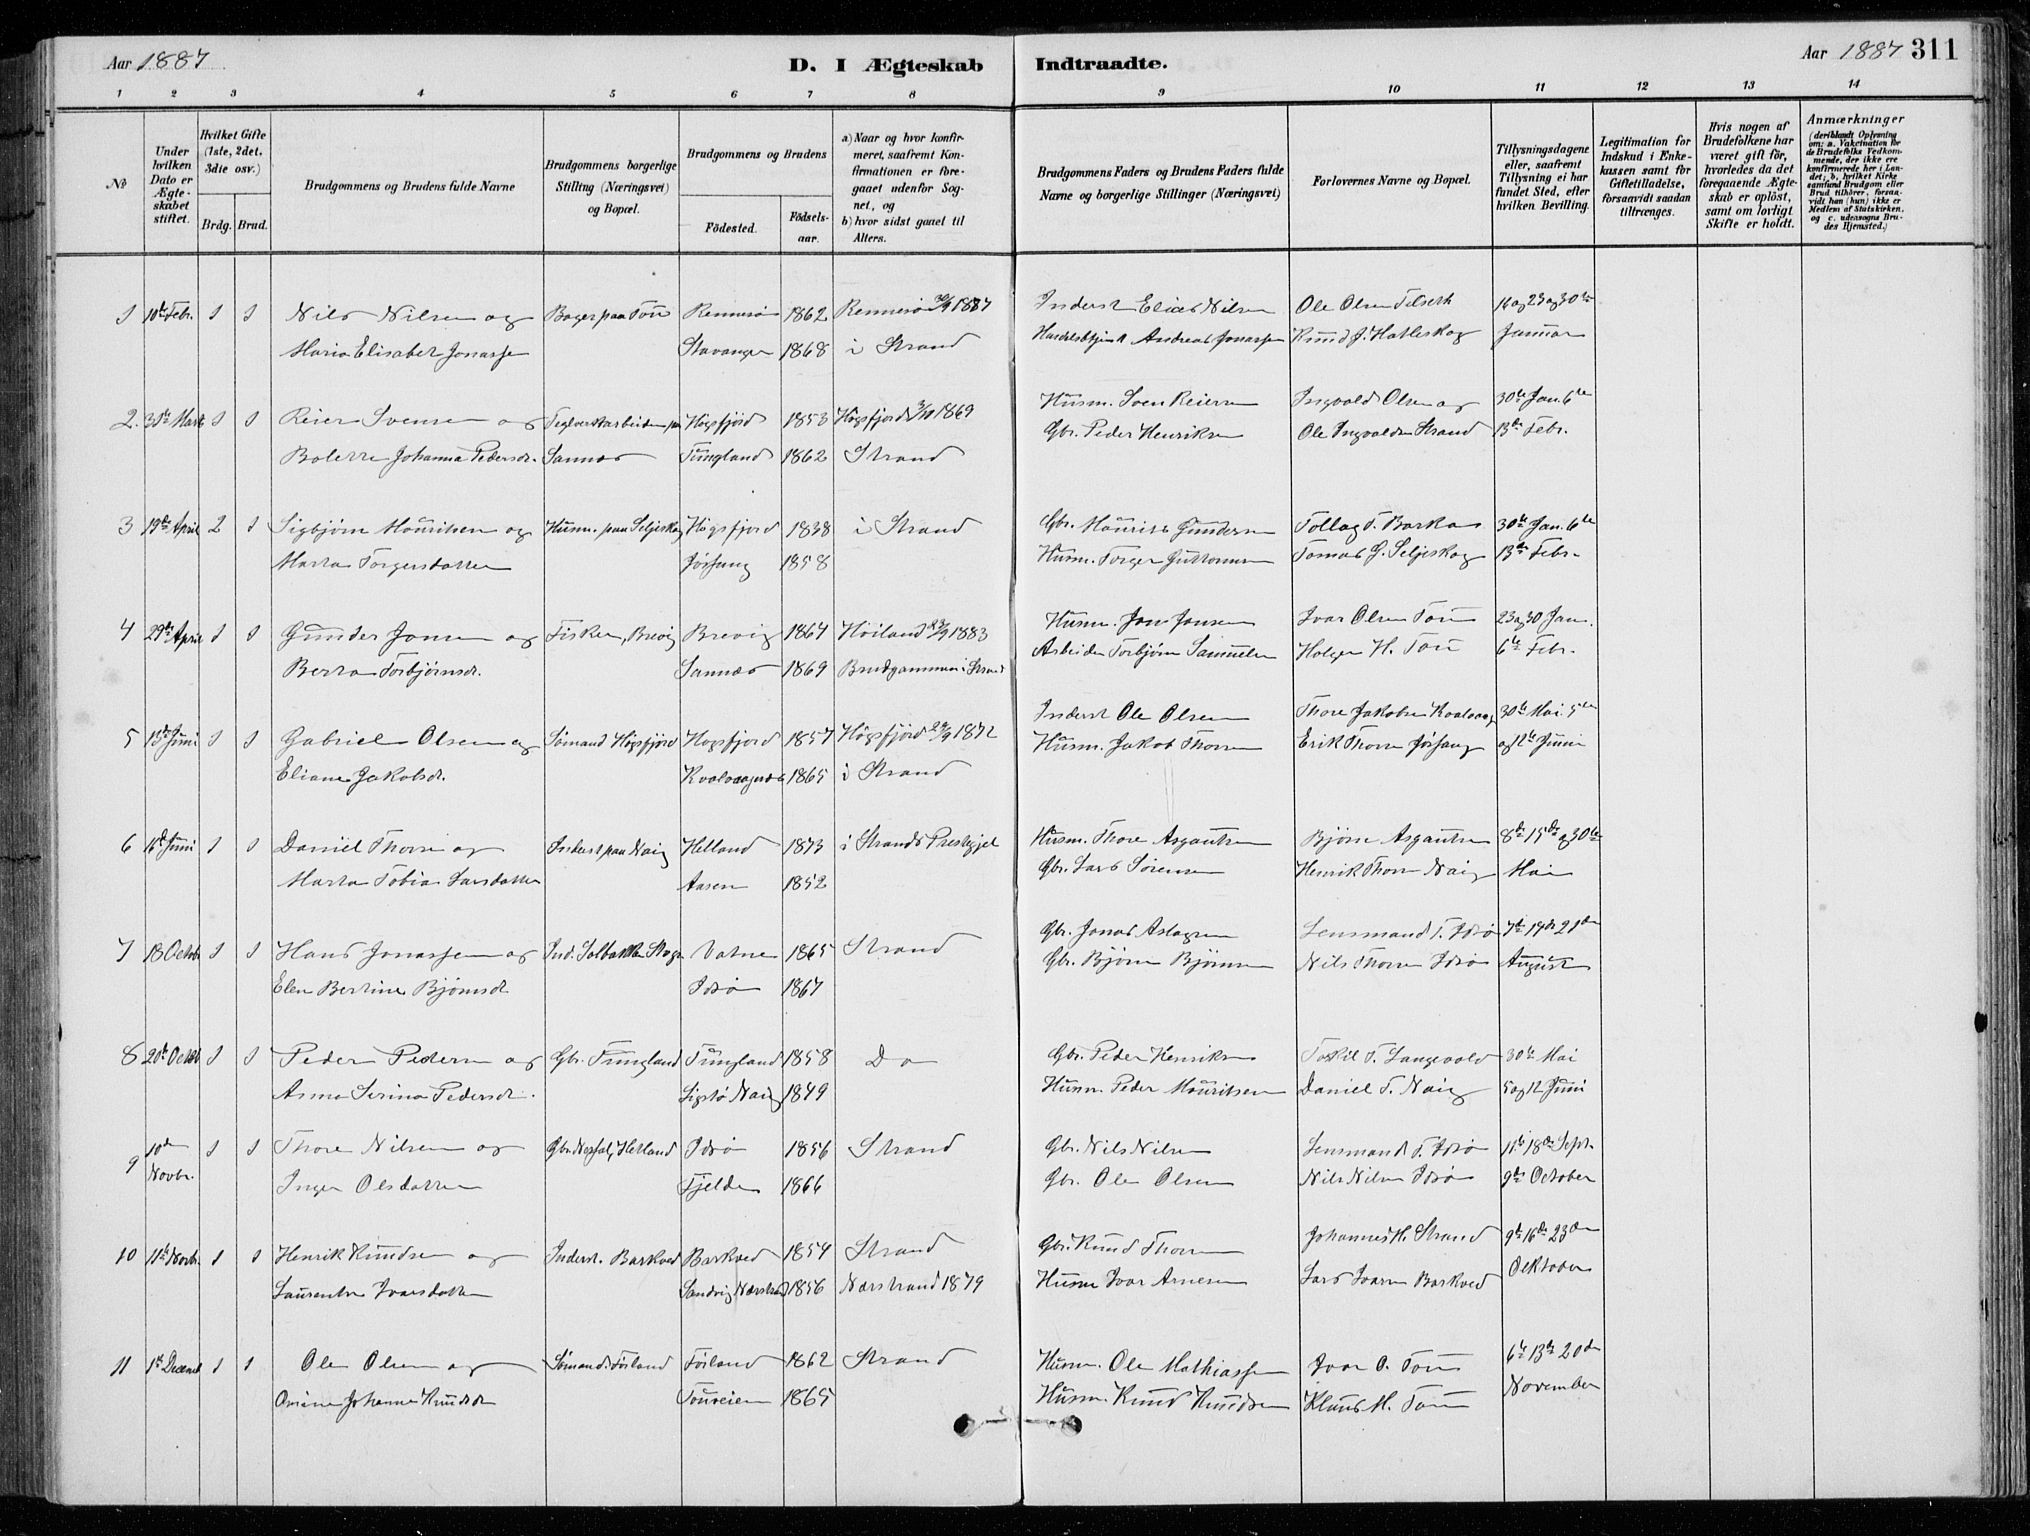 Aar 1887
D. I Ægteskab Indtraadte.
Aar 1887 311
1 2 3 4 5 6 7 8 9 10 11 12 13 14
No
Under hvilken Dato er Ægteskabet stiftet.
Hvilket Gifte (1ste, 2det, 3die osv.)
Brdg. Brud.
Brudgommens og Brudens fulde Navne
Brudgommens borgerlige Stilling (Næringsvei) og Bopæl.
Brudgommens og Brudens
Födested.
Födselsaar.
a) Naar og hvor konfirmeret, saafremt Konfirmationen er foregaaet udenfor Sognet, og
b) hvor sidst gaaet til Alters.
Brudgommens Faders og Brudens Faders fulde Navne og borgerlige Stillinger (Næringsvei)
Forlovernes Navne og Bopæl.
Tillysningsdagene eller, saafremt Tillysning ei har fundet Sted, efter hvilken Bevilling.
Legitimation for Indskud i Enkekassen samt for Giftetilladelse, forsaavidt saadan tiltrænges.
Hvis nogen af Brudefolkene har været gift för, hvorledes da det foregaaende Ægteskab er oplöst, samt om lovligt Skifte er holdt.
Anmærkninger (deriblandt Oplysning om: a. Vakcination for de Brudefolks Vedkommende, der ikke ere konfirmerede her i Landet; b. hvilket Kirkesamfund Brudgom eller Brud tilhörer, forsaavidt han (hun) ikke er Medlem af Statskirken, og c. udensogns Brudes Hjemsted.)
1 10de Febr. 1 1 Nils Nilsen og Bager paa Tou Rennesö 1862 Rennesö 1887 Inderst Elias Nilsen Ole Olsen 16 og 23 og 30te
Maria Elisabet Jonassen Stavanger 1868 i Strand Andreas Jonassen Knud J. Hatleskog Januar
2. 31te Marts 1 1 Reier Svensen og Teglverksarbeider paa Högsfjord 1853 Högsfjord 3/10 1869 Husm. Sven Reiersen Ingvald Olsen og 30te Jan. 6te
Bolette Johanna Pedersdr. Sannes Tungland 1862 Strand Gbr. Peder Henriksen Ole Ingvaldsen Strand 13de Febr.
3 19de April 2 1 Sigbjörn Mouritsen og Husm. paa Seljeskog Högsfjord 1838 i Strand Gbr. Mourits Gundersen Tollag T. Barka 30te Jan. 6te
Marta Torgersdatter Jösang 1858 Husm. Torger Guttormsen Tomas G. Seljeskog 13de Febr.
4 29de April 1 1 Gunder Jonsen og Fisker, Brevig Brevig 1864 Höiland 1883 Husm. Jon Jonsen Ivar Olsen Tou 23 og 30 Jan.
Berta Torbjörnsdr. Sannes 1869 Brudgommen i Strand Arbeider Torbjörn Samuelsen Holger H. Tou 6te Febr.
5 13de Juni 1 1 Gabriel Olsen og Sömand Högsfjord Högsfjord 1857 Högsfjord 1872 Inderst Ole Olsen Thore Jakobsen Kvalvaag 30te Mai 5te
Eliane Jakobsdr. 1865 i Strand Husm. Jakob Thorsen Erik Thorsen Jösang og 12te Juni
6 16d Juni 1 1 Daniel Thorsen og Inderst paa Naig Helland 1873 i Strands Prestegjel Husm. Thore Asgautsen Björn Asgautsen 8de 15de og 30te
Marta Tobia Larsdatter Aasen 1852 Gbr. Lars Sörensen Henrik Thorsen Naig Mai
7 13 Octobr 1 1 Hans Jonassen og Ind. Solbakken Vatne 1865 Strand Gbr. Jonas Aslagsen Lensmand T. Idsö 7de 14de 21de
Elen Bertine Björnsdr. Idsö 1867 Gbr. Björn Björnsen Nils Thorsen Idsö August
8 20de Octob 1 1 Peder Pedersen og Gbr. Tungland Tungland 1858 Do Gbr. Peder Henriksen Torkil T. Langevold 30te Mai
Anna Serina Pedersdr. Naig 1849 Husm. Peder Mouritsen Daniel T. Naig 5 og 12 Juni
9 10de Novbr. 1 1 Thore Nilsen og Gbr. Hetland Idsö 1856 Strand Gbr. Nils Nilsen Lensmand T. Idsö 11te 18de Sept.
Inger Olsdatter Fjelde 1866 Gbr. Ole Olsen Nils Nilsen Idsö 9de October
10 11te Novbr. 1 1 Henrik Knudsen og Inderst. Barkved Barkved 1854 Strand Gbr. Knud Thorsen Johannes H. Strand 9de 16de 23de
Laurentse Ivarsdatter Sandvig Nærstrand 1856 Nærstrand 1879 Husm Ivar Arnesen Lars Ivarsen Barkved Oektober
11 1te Decemb 1 1 Ole Olsen og Sömand Fösland Fösland 1862 Strand Husm. Ole Mathiassen Ivar O. Tou 6te 13de 20de
Johanne Knudsdr Touveien 1865 Husm. Knud Knudsen Klaus M. Tou November